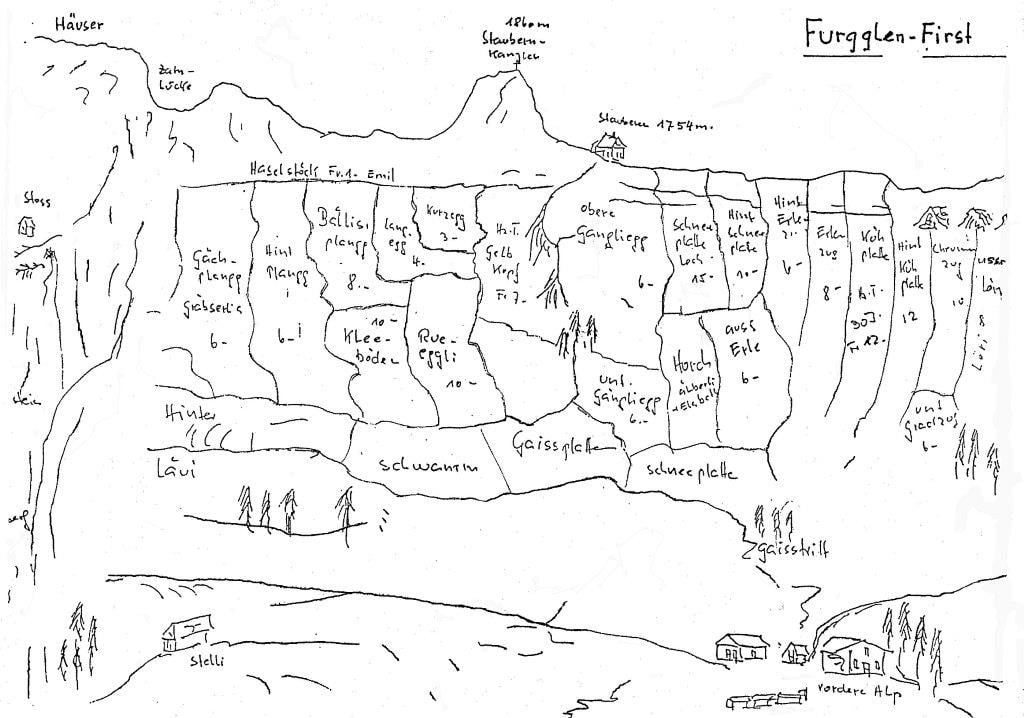 Häuser
Furgglen-First
1860m
Staubern-
Kanzlen
Zahn-
Lücke
Stauberen 1754m.
Haselstöck Fr. 1.- Emil
Stoss
Gäch-
plangg
Grässerlis
6.-
Hint
Plangg
6.-
Bällis
plangg
8.-
lang
egg
4.-
Kurzegg
3.-
H.T.
Gelb
Kopf
Fr 7.-
obere
Gängliegg
6.-
Schnee
platte
Loch
15.-
Hint
Schnee
platte
10.-
Hint
Erle
6.-
Erle
zug
8.-
Küh
platte
H.T.
Fr 12.-
Hint
Küh
platte
12
zug
10
8
10.-
Klee-
böden
Rue-
eggli
10.-
unt.
Gängliegg
6.-
Horch
auss
Erle
6.-
unt
6.-
Hinter
Lävi
schwamm
Gaissplatte
schneeplatte
gaisstritt
Stelli
vordere Alp